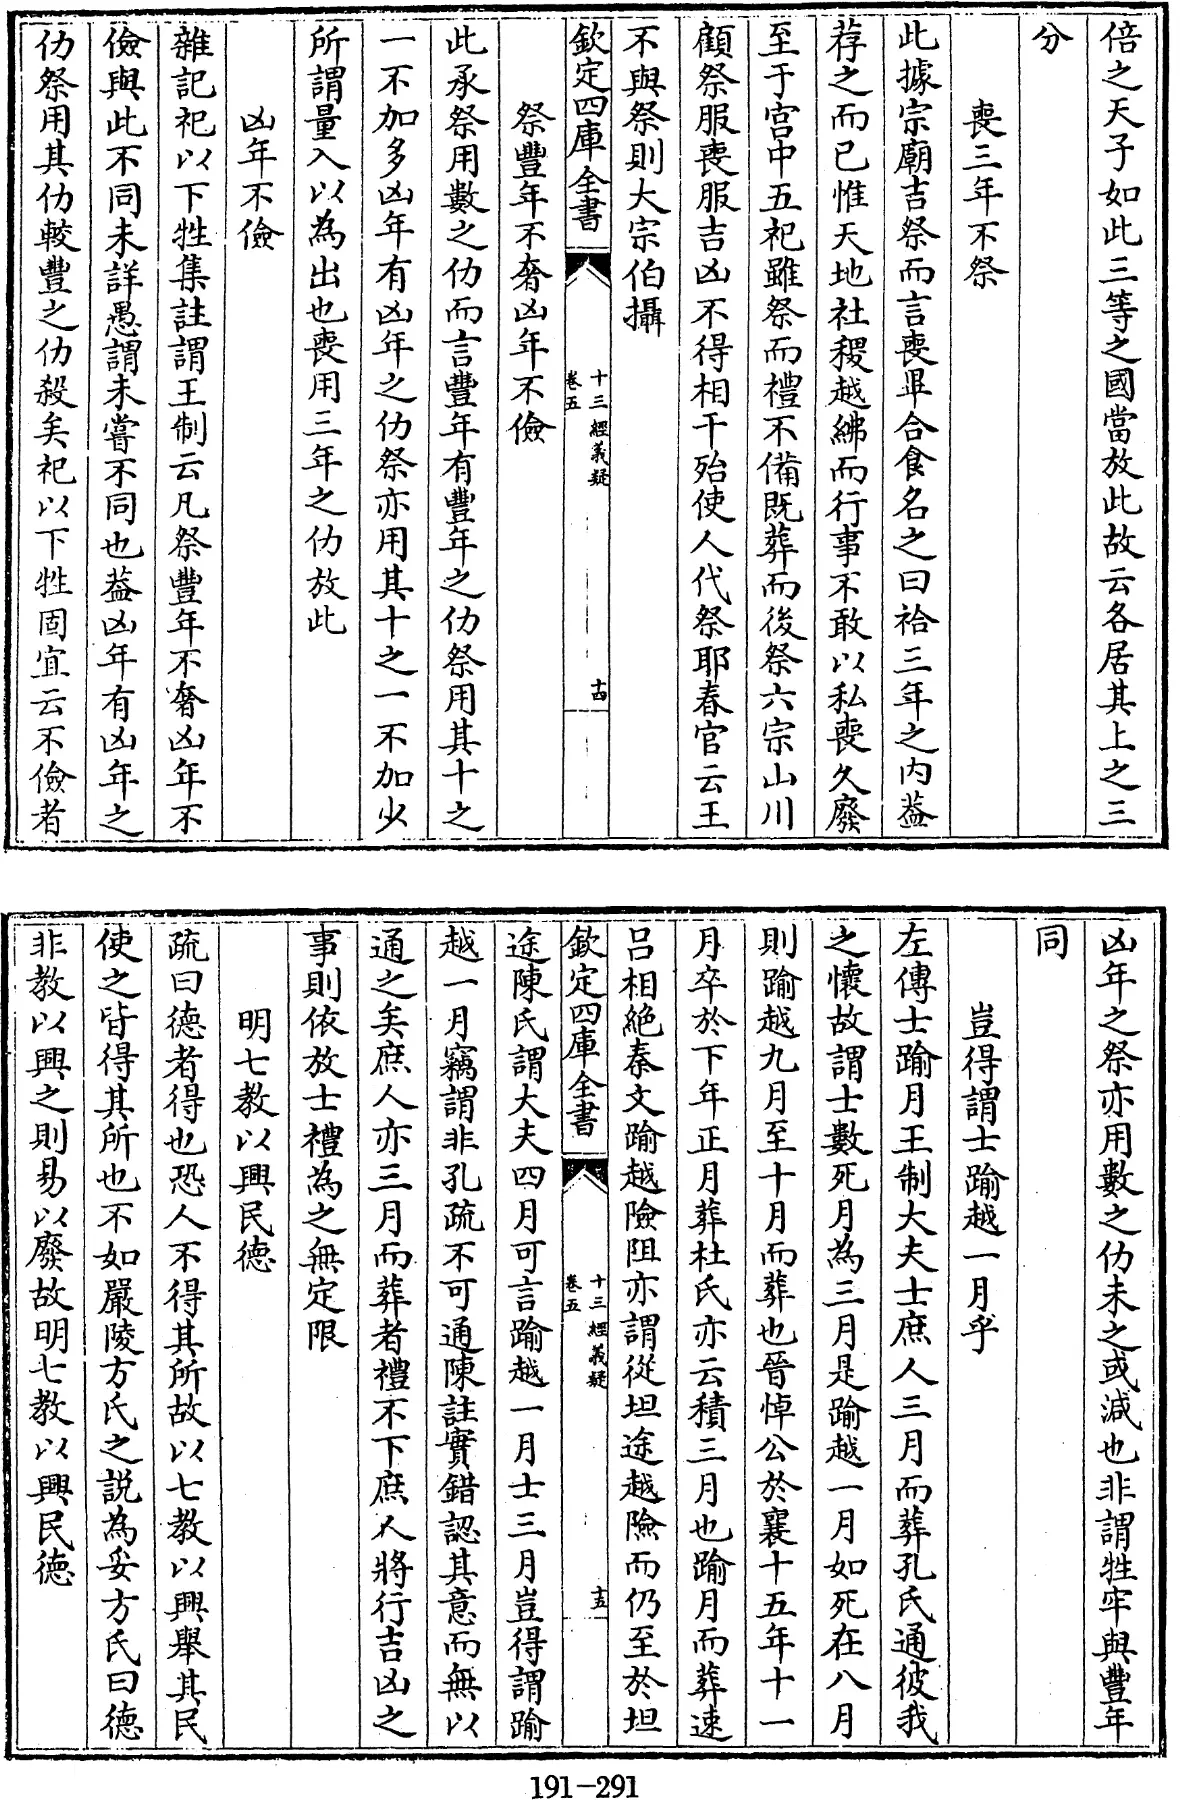 倍之天子如此三等之國當放此故云各居其上之三
分
喪三年不祭
此據宗廟吉祭而言喪畢合食名之曰祫三年之内葢
荐之而已惟天地社稷越紼而行事不敢以私喪久廢
至于宫中五祀雖祭而禮不備既葬而後祭六宗山川
顧祭服喪服吉凶不得相干殆使人代祭耶春官云王
不與祭則大宗伯攝
欽定四庫全書
十三經義疑
卷五
十四
祭豐年不奢凶年不儉
此承祭用數之仂而言豐年有豐年之仂祭用其十之
一不加多凶年有凶年之仂祭亦用其十之一不加少
所謂量入以為出也喪用三年之仂放此
凶年不儉
雜記祀以下牲集註謂王制云凡祭豐年不奢凶年不
儉與此不同未詳愚謂未嘗不同也葢凶年有凶年之
仂祭用其仂較豐之仂殺矣祀以下牲固宜云不儉者
凶年之祭亦用數之仂未之或減也非謂牲牢與豐年
同
豈得謂士踰越一月乎
左傳士踰月王制大夫士庶人三月而葬孔氏通彼我
之懷故謂士數死月為三月是踰越一月如死在八月
則踰越九月至十月而葬也晉悼公於襄十五年十一
月卒於下年正月葬杜氏亦云積三月也踰月而葬速
吕相絶秦文踰越險阻亦謂從坦途越險而仍至於坦
欽定四庫全書
十三經義疑
卷五
十五
途陳氏謂大夫四月可言踰越一月士三月豈得謂踰
越一月竊謂非孔疏不可通陳註實錯認其意而無以
通之矣庶人亦三月而葬者禮不下庶人將行吉凶之
事則依放士禮為之無定限
明七教以興民德
疏曰德者得也恐人不得其所故以七教以興舉其民
使之皆得其所也不如嚴陵方氏之説為妥方氏曰德
非教以興之則易以廢故明七教以興民德
191-291